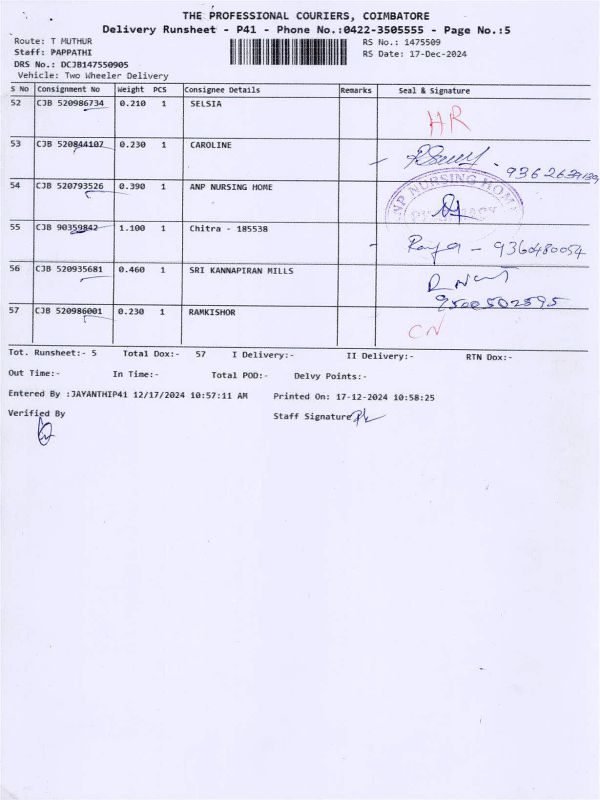 THE PROFESSIONAL COURIERS, COIMBATORE
Delivery Runsheet - P41 - Phone No.:0422-3505555 - Page No.:5
Route: T MUTHUR
RS No.: 1475509
Staff: PAPPATHI
RS Date: 17-Dec-2024
DRS No.: DCJB147550905
Vehicle: Two Wheeler Delivery
S No Consignment No Weight PCS Consignee Details Remarks Seal & Signature
52 CJB 520986734 0.210 1 SELSIA
HR
53 CJB 520844107 0.230 1 CAROLINE
54 CJB 520793526 0.390 1 ANP NURSING HOME
ANP NURSING HOME
55 CJB 90359842 1.100 1 Chitra - 185538
9360480054
56 CJB 520935681 0.460 1 SRI KANNAPIRAN MILLS
9500502595
57 CJB 520986001 0.230 1 RAMKISHOR
CN
Tot. Runsheet:- 5 Total Dox:- 57 I Delivery:- II Delivery:- RTN Dox:-
Out Time:- In Time:- Total POD:- Delvy Points:-
Entered By :JAYANTHIP41 12/17/2024 10:57:11 AM Printed On: 17-12-2024 10:58:25
Verified By
Staff Signature